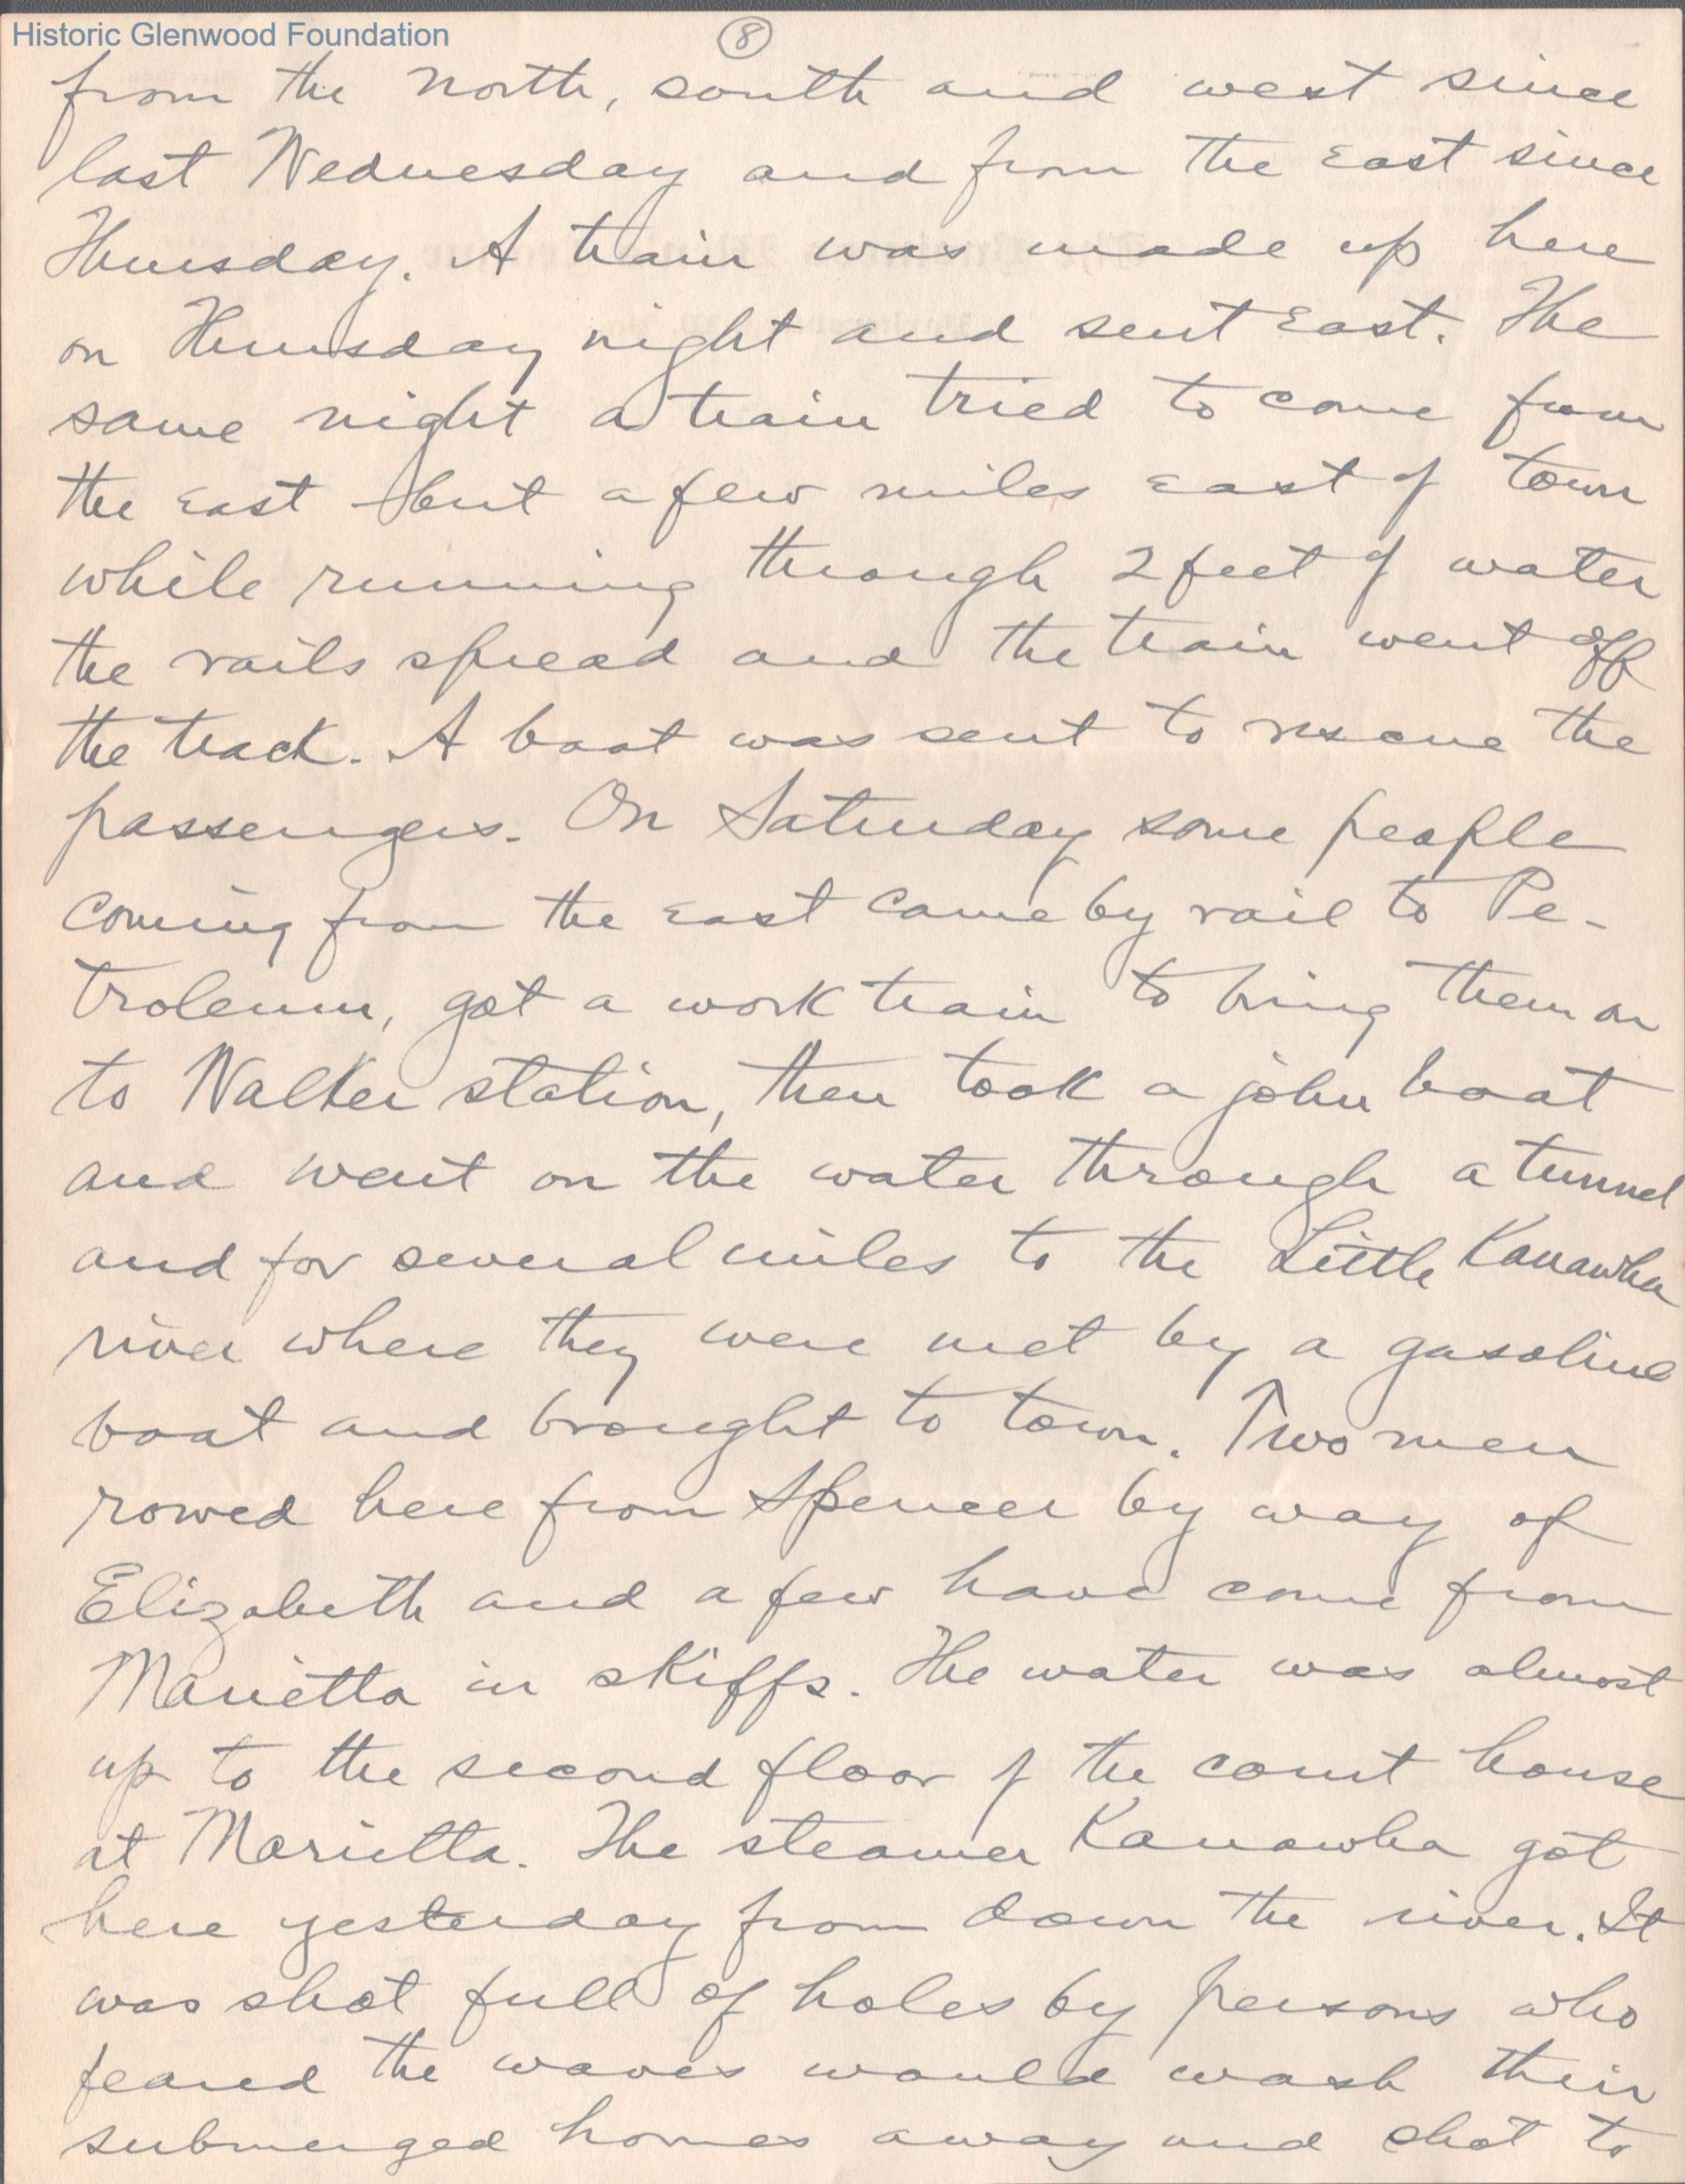 Historic Glenwood Foundation
8
from the north, south and west since
last Wednesday and from the east since
Thursday. A train was made up here
on Thursday night and sent east. The
same night a train tried to come from
the east but a few miles east of town
while running through 2 feet of water
the rails spread and the train went off
the track. A boat was sent to rescue the
passengers. On Saturday some people
coming from the east came by rail to Pe-
troleum, got a work train to bring them on
to Walker station, then took a john boat
and went on the water through a tunnel
and for several miles to the Little Kanawha
river where they were met by a gasoline
boat and brought to town. Two men
rowed here from Spencer by way of
Elizabeth and a few have come from
Marietta in skiffs. The water was almost
up to the second floor of the court house
at Marietta. The steamer Kanawha got
here yesterday from down the river. It
was shot full of holes by persons who
feared the waves would wash their
submerged homes away and shot to